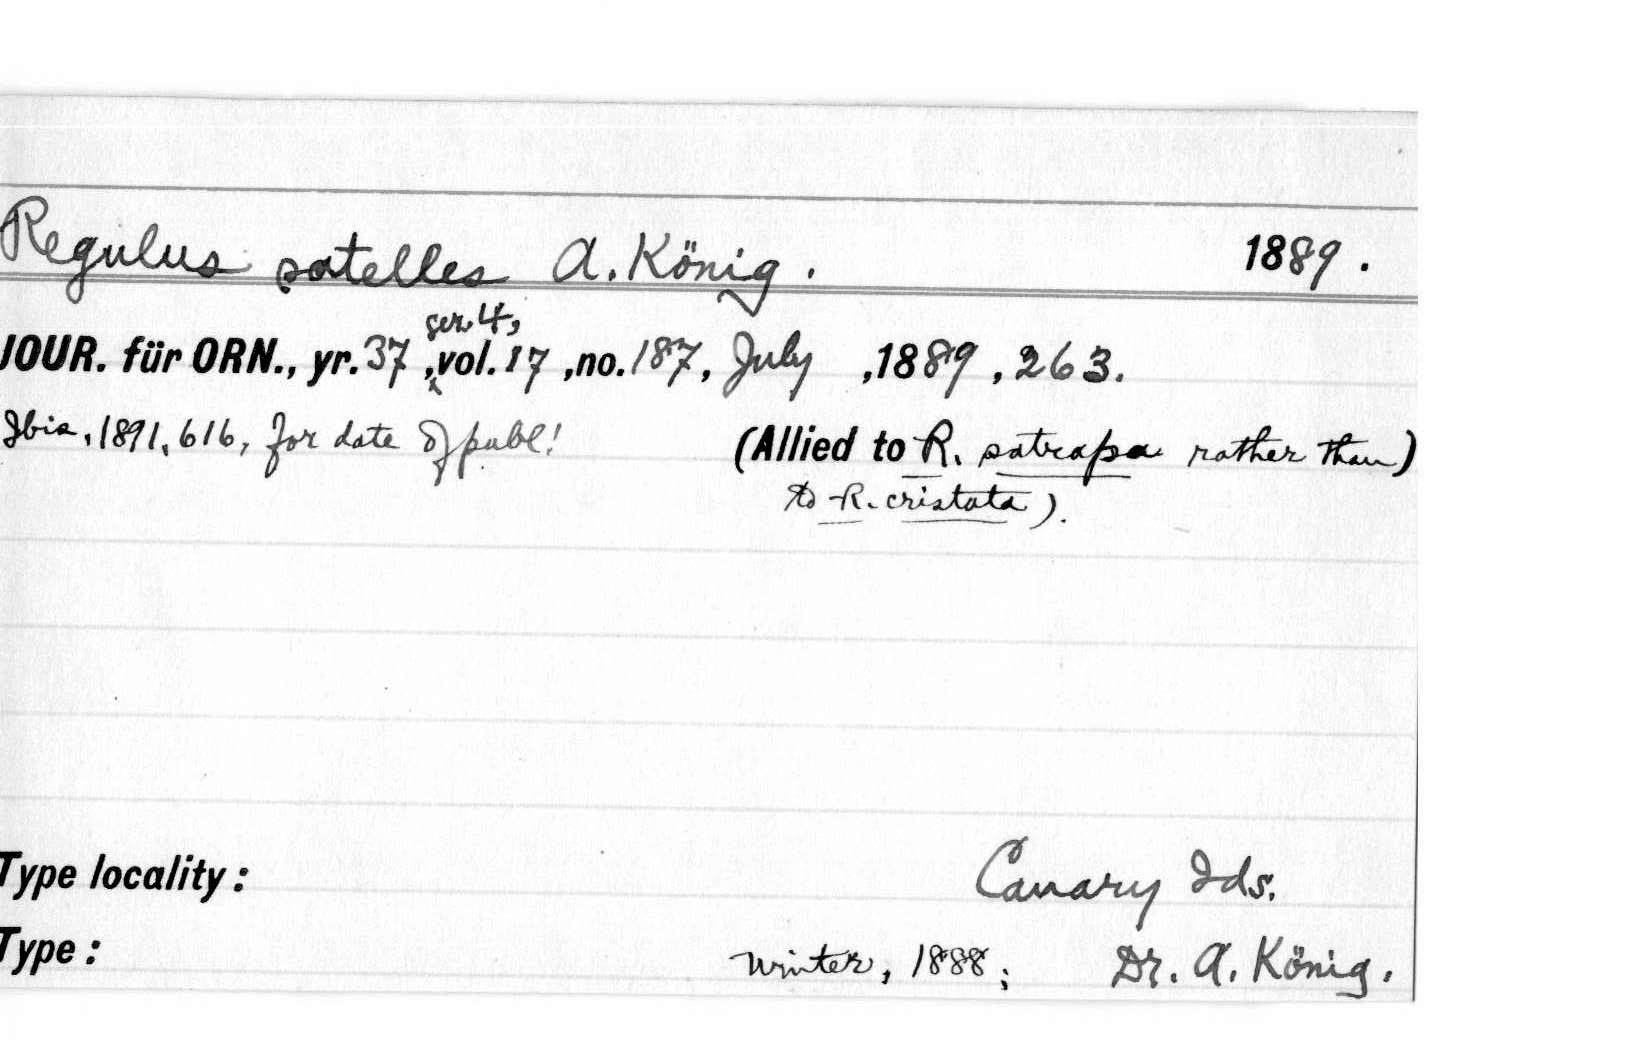 Regulus satelles A. König. 1889.
ser. 4,
JOUR. für ORN., yr. 37, vol. 17, no. 187, July, 1889, 263.
Ibis, 1891, 616, for date of publ! (Allied to R. satrapa rather than)
to R. cristata).
Type locality: Canary Ids.
Type: Winter, 1888; Dr. A. König.